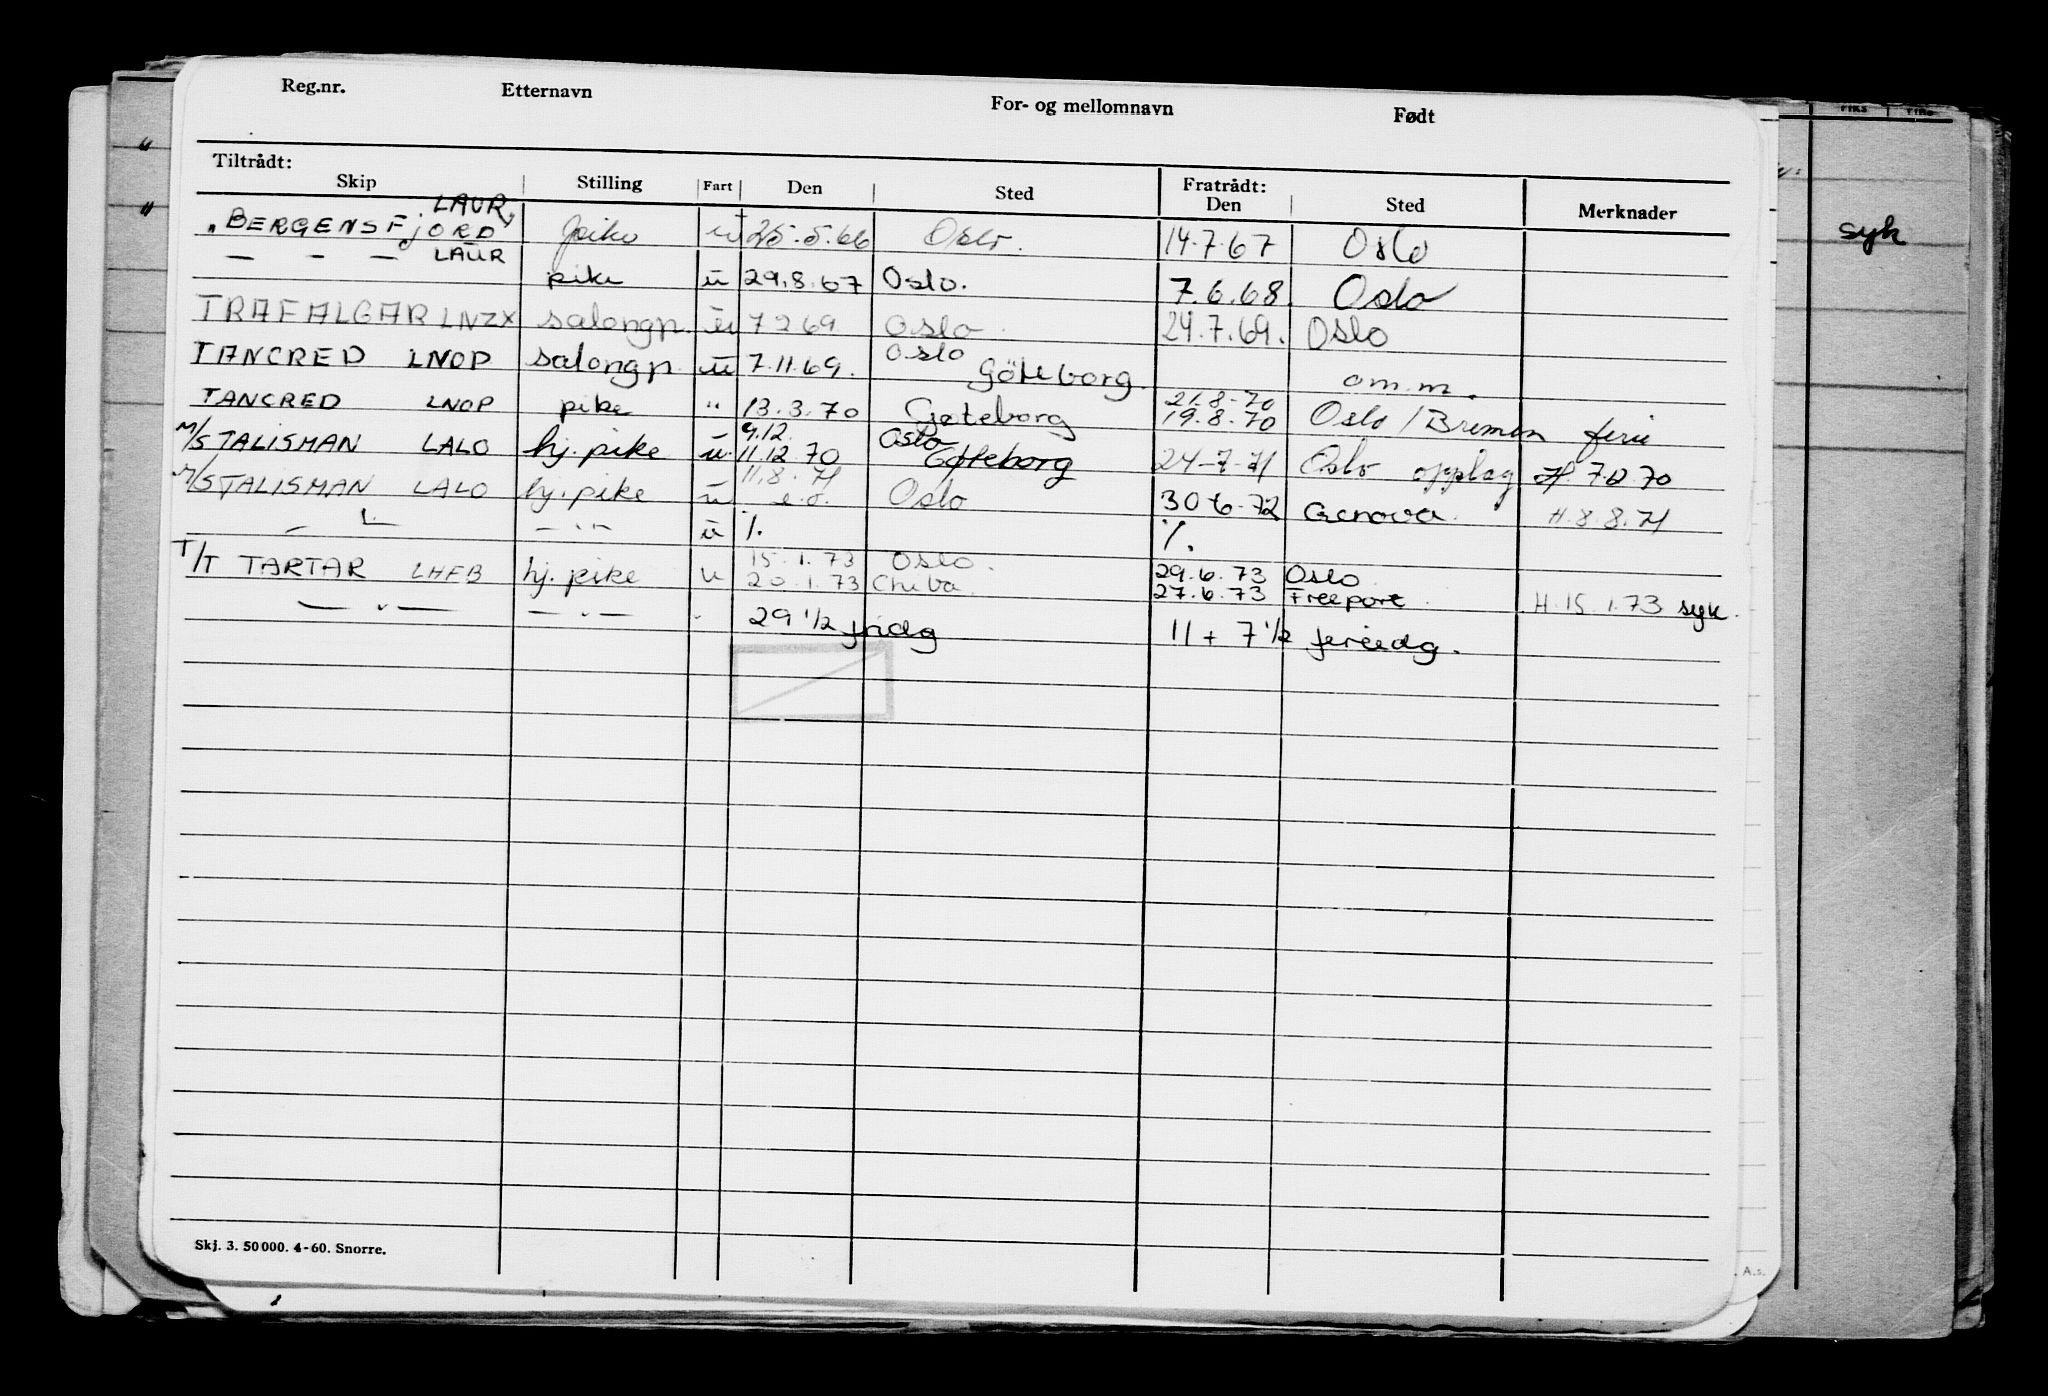 Reg.nr. Etternavn For- og mellomnavn Født
Tiltrådt: Fratrådt:
Skip Stilling Fart Den Sted Den Sted Merknader
LAUR
"BERGENSFjORD" pike u 25.5.66 Oslo. 14.7.67 Oslo
— - — LAUR pike u 29.8.67 Oslo. 7.6.68. Oslo
TRAFALGAR LNZX salongp. u 7 2 69 Oslo. 24.7.69. Oslo
TANCRED LNOP salongp u 7.11.69. Oslo Göteborg. om.m.
TANCRED LNOP pike " 13.3.70 Gøteborg 21.8-70 19.8.70 Oslo / Bremen ferie
M/S TALISMAN LALO hj. pike u. 9.12. 11.12 70 Oslo Gøteborg 24-7-71 Oslo opplag
M/S TALISMAN LALO hj. pike u 11.8.71 e.o. Oslo 30-6-72 Genova. H.8.8.71
— " — — " — u ·/. ·/.
T/T TARTAR LHFB hj. pike u 15.1.73 Oslo. 29.6.73 Oslo.
20.1.73 Chiba. 27.6.73 Freeport. H.15.1.73 syk.
— " — — " — " 29 1/2 fridg 11 + 7 1/2 feriedg.
syk
Skj. 3. 50000. 4-60. Snorre.
A.s.